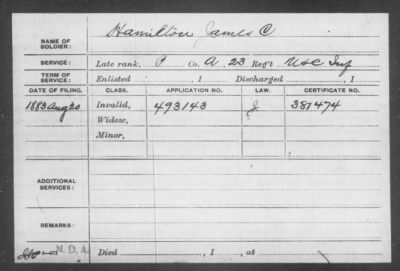 NAME OF SOLDIER: Hamilton James C
SERVICE: Late rank, P Co. A. 23 Reg't U S C Inf
TERM OF SERVICE: Enlisted , 1 Discharged , 1
DATE OF FILING. CLASS. APPLICATION NO. LAW. CERTIFICATE NO.
1883 Aug 20 Invalid, 493143 J 381474
Widow,
Minor,
ADDITIONAL SERVICES:
REMARKS:
N. D. A.
Died , 1 , at